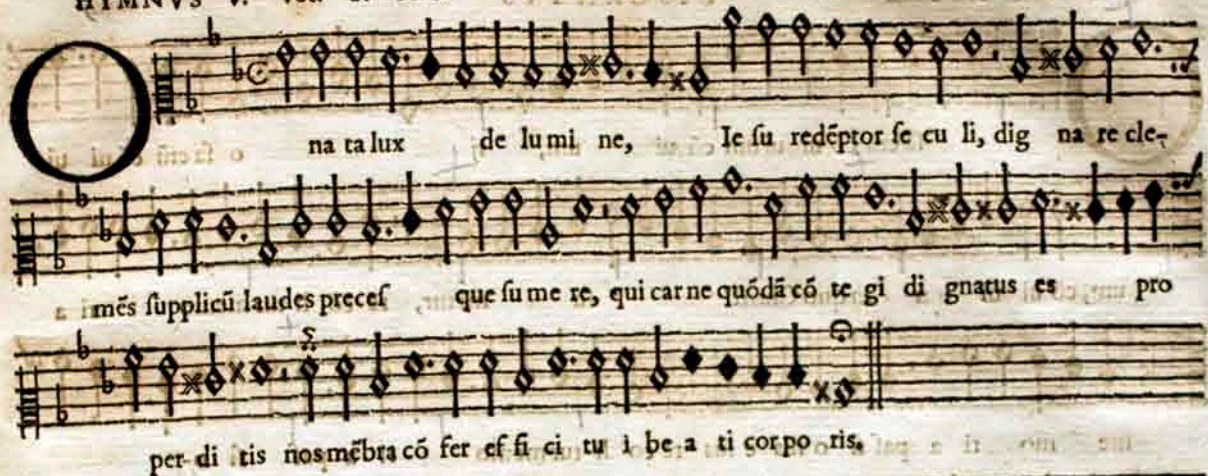 HYMNVS V.
O na ta lux de lu mi ne, Ie ſu redẽptor ſe cu li, dig na re cle-
mẽs ſupplicũ laudes preceſ que ſu me re, qui car ne quõdã cõ te gi di gnatus es pro
per di tis nos mẽbra cõ fer ef fi ci tu i be a ti cor po ris.